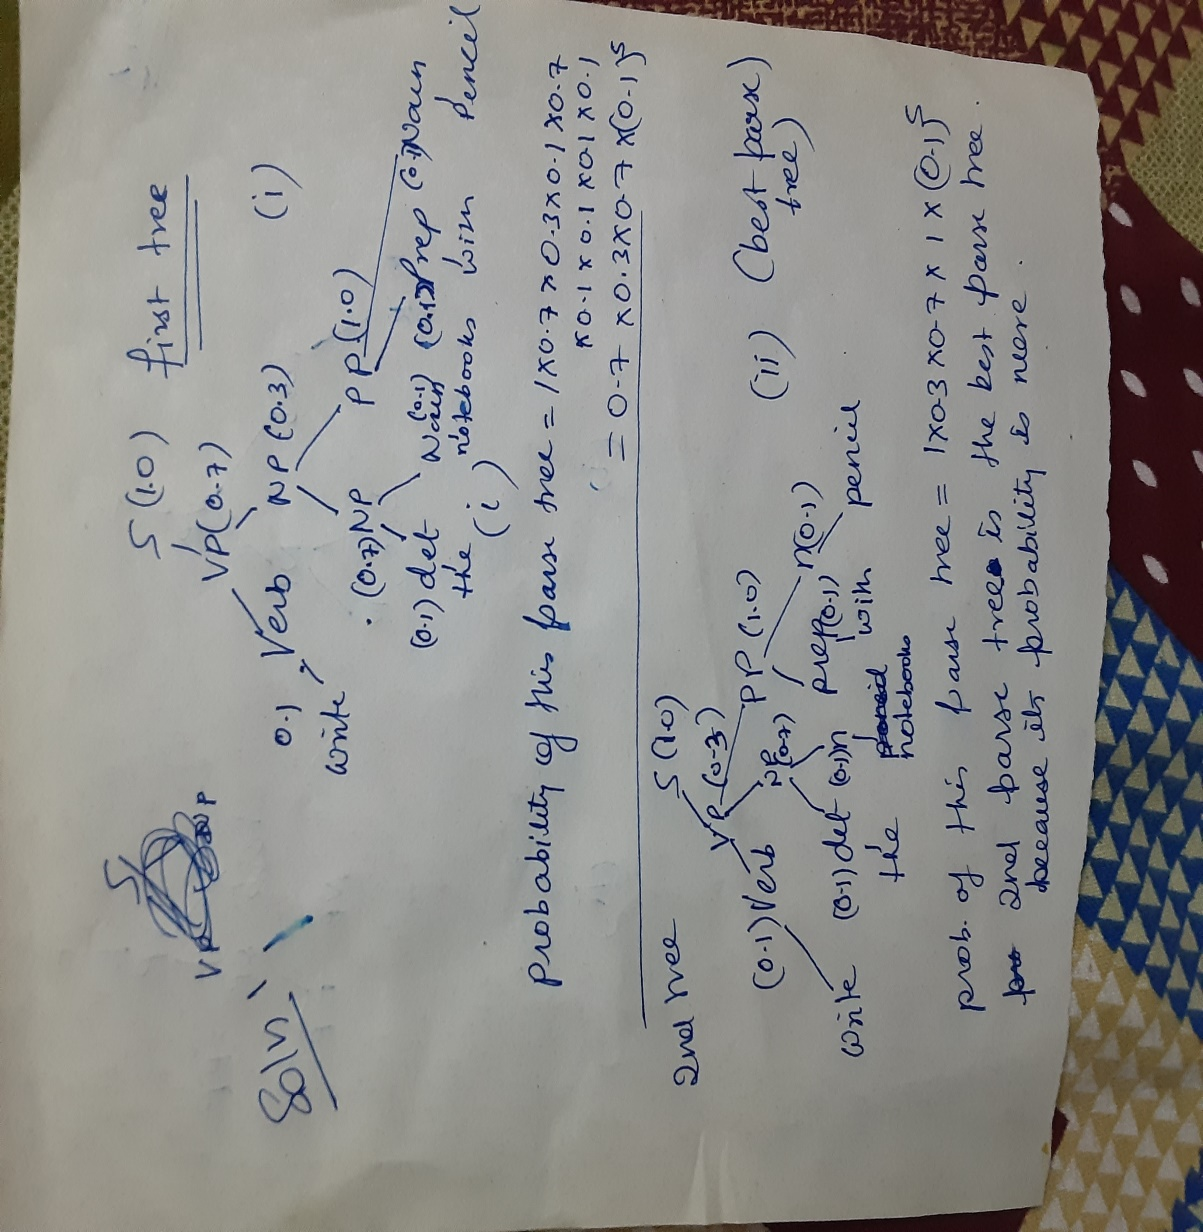 Soln
S
VP NP
first tree
S (1.0)
VP(0.7)
0.1 Verb NP (0.3) (i)
write (0.7)NP PP (1.0)
(0.1) det Noun (0.1) (0.1)Prep (0.1)Noun
the notebooks with Pencil
(i)
probability of this parse tree = 1x0.7 x0.3x0.1x0.7
x0.1 x 0.1 x0.1 x0.1
= 0.7 x0.3x0.7 x(0.1)5
2nd tree
S (1.0)
VP (0.3)
(0.1) Verb NP (0.7) PP (1.0) (ii) (best parse tree)
write (0.1) det (0.1)n prep(0.1) n(0.1)
the notebooks with pencil
prob. of this parse tree = 1x0.3x0.7x1x(0.1)5
2nd parse tree is the best parse tree.
because its probability is more.